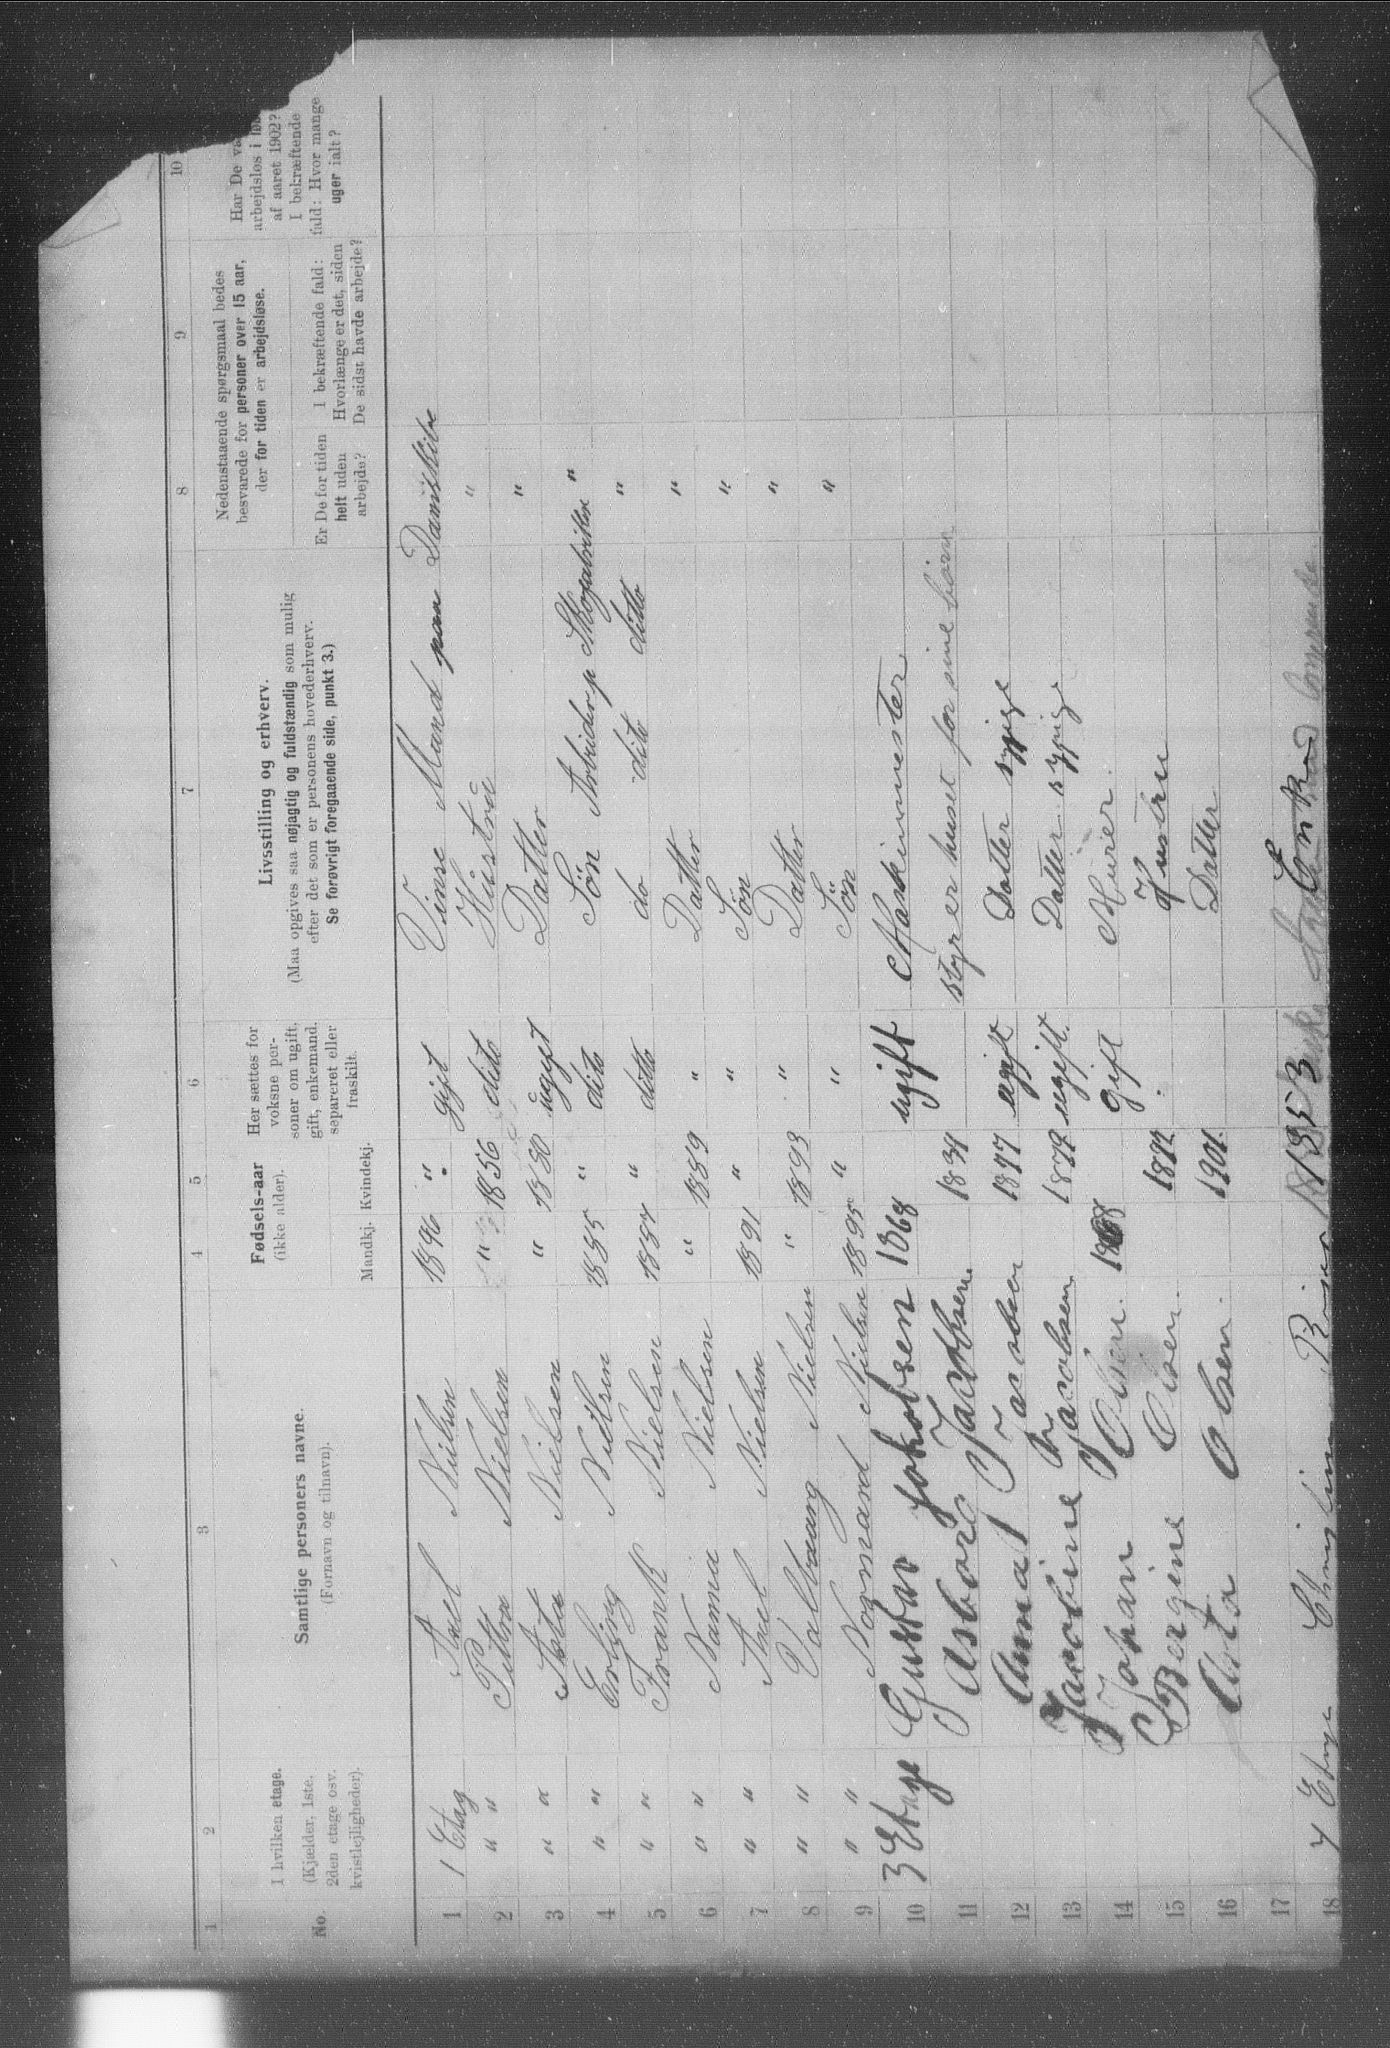 1 2 3 4 5 6 7 8 9 10
No.
I hvilken etage.
(Kjælder, 1ste,
2den etage osv.
kvistlejligheder).
Samtlige personers navne.
(Fornavn og tilnavn).
Fødsels-aar
(ikke alder).
Mandkj. Kvindekj.
Her sættes for
voksne per-
soner om ugift,
gift, enkemand,
separeret eller
fraskilt.
Livsstilling og erhverv.
(Maa opgives saa nøjagtig og fuldstændig som mulig
efter det som er personens hovederhverv.
Se forøvrigt foregaaende side, punkt 3.)
Nedenstaaende spørgsmaal bedes
besvarede for personer over 15 aar,
der for tiden er arbejdsløse.
Er De for tiden
helt uden
arbejde?
I bekræftende fald:
Hvorlænge er det, siden
De sidst havde arbejde?
Har De væ
arbejdsløs i løb
af aaret 1902?
I bekræftende
fald: Hvor mange
uger ialt?
1 1 Etag Axel Nielsen " gift Mand paa
2 " " Nielsen " 1856 dito Hüstrü "
3 " " Nielsen " 1880 ügift Datter "
4 " " Erling Nielsen 1885 " dito Sön "
5 " " Frank Nielsen 1887 " ditto do dito ditto "
6 " " Nanna Nielsen " 1889 " Datter "
7 " " Axel Nielsen 1891 " " Sön "
8 " " Valbaarg Nielsen " 1893 " Datter "
9 " " Normand Nielsen 1895 " " Sön "
10 3 Etage Gustav Jakobsen 1868 ugift Maskinmester
11 Asborg Jacobsen. 1834 styrer huset for sine børn
12 Anna Jacobsen 1877 ugift Datter sypige
13 Jacobine Jacobsen 1879 ugift. Datter sypige
14 Johan Olsen. 1868 gift Murer.
15 Bergine Olsen. 1872 . Hustru
16 Asta Olsen. 1901. Datter
17
18 4 Etage 1835 Enke